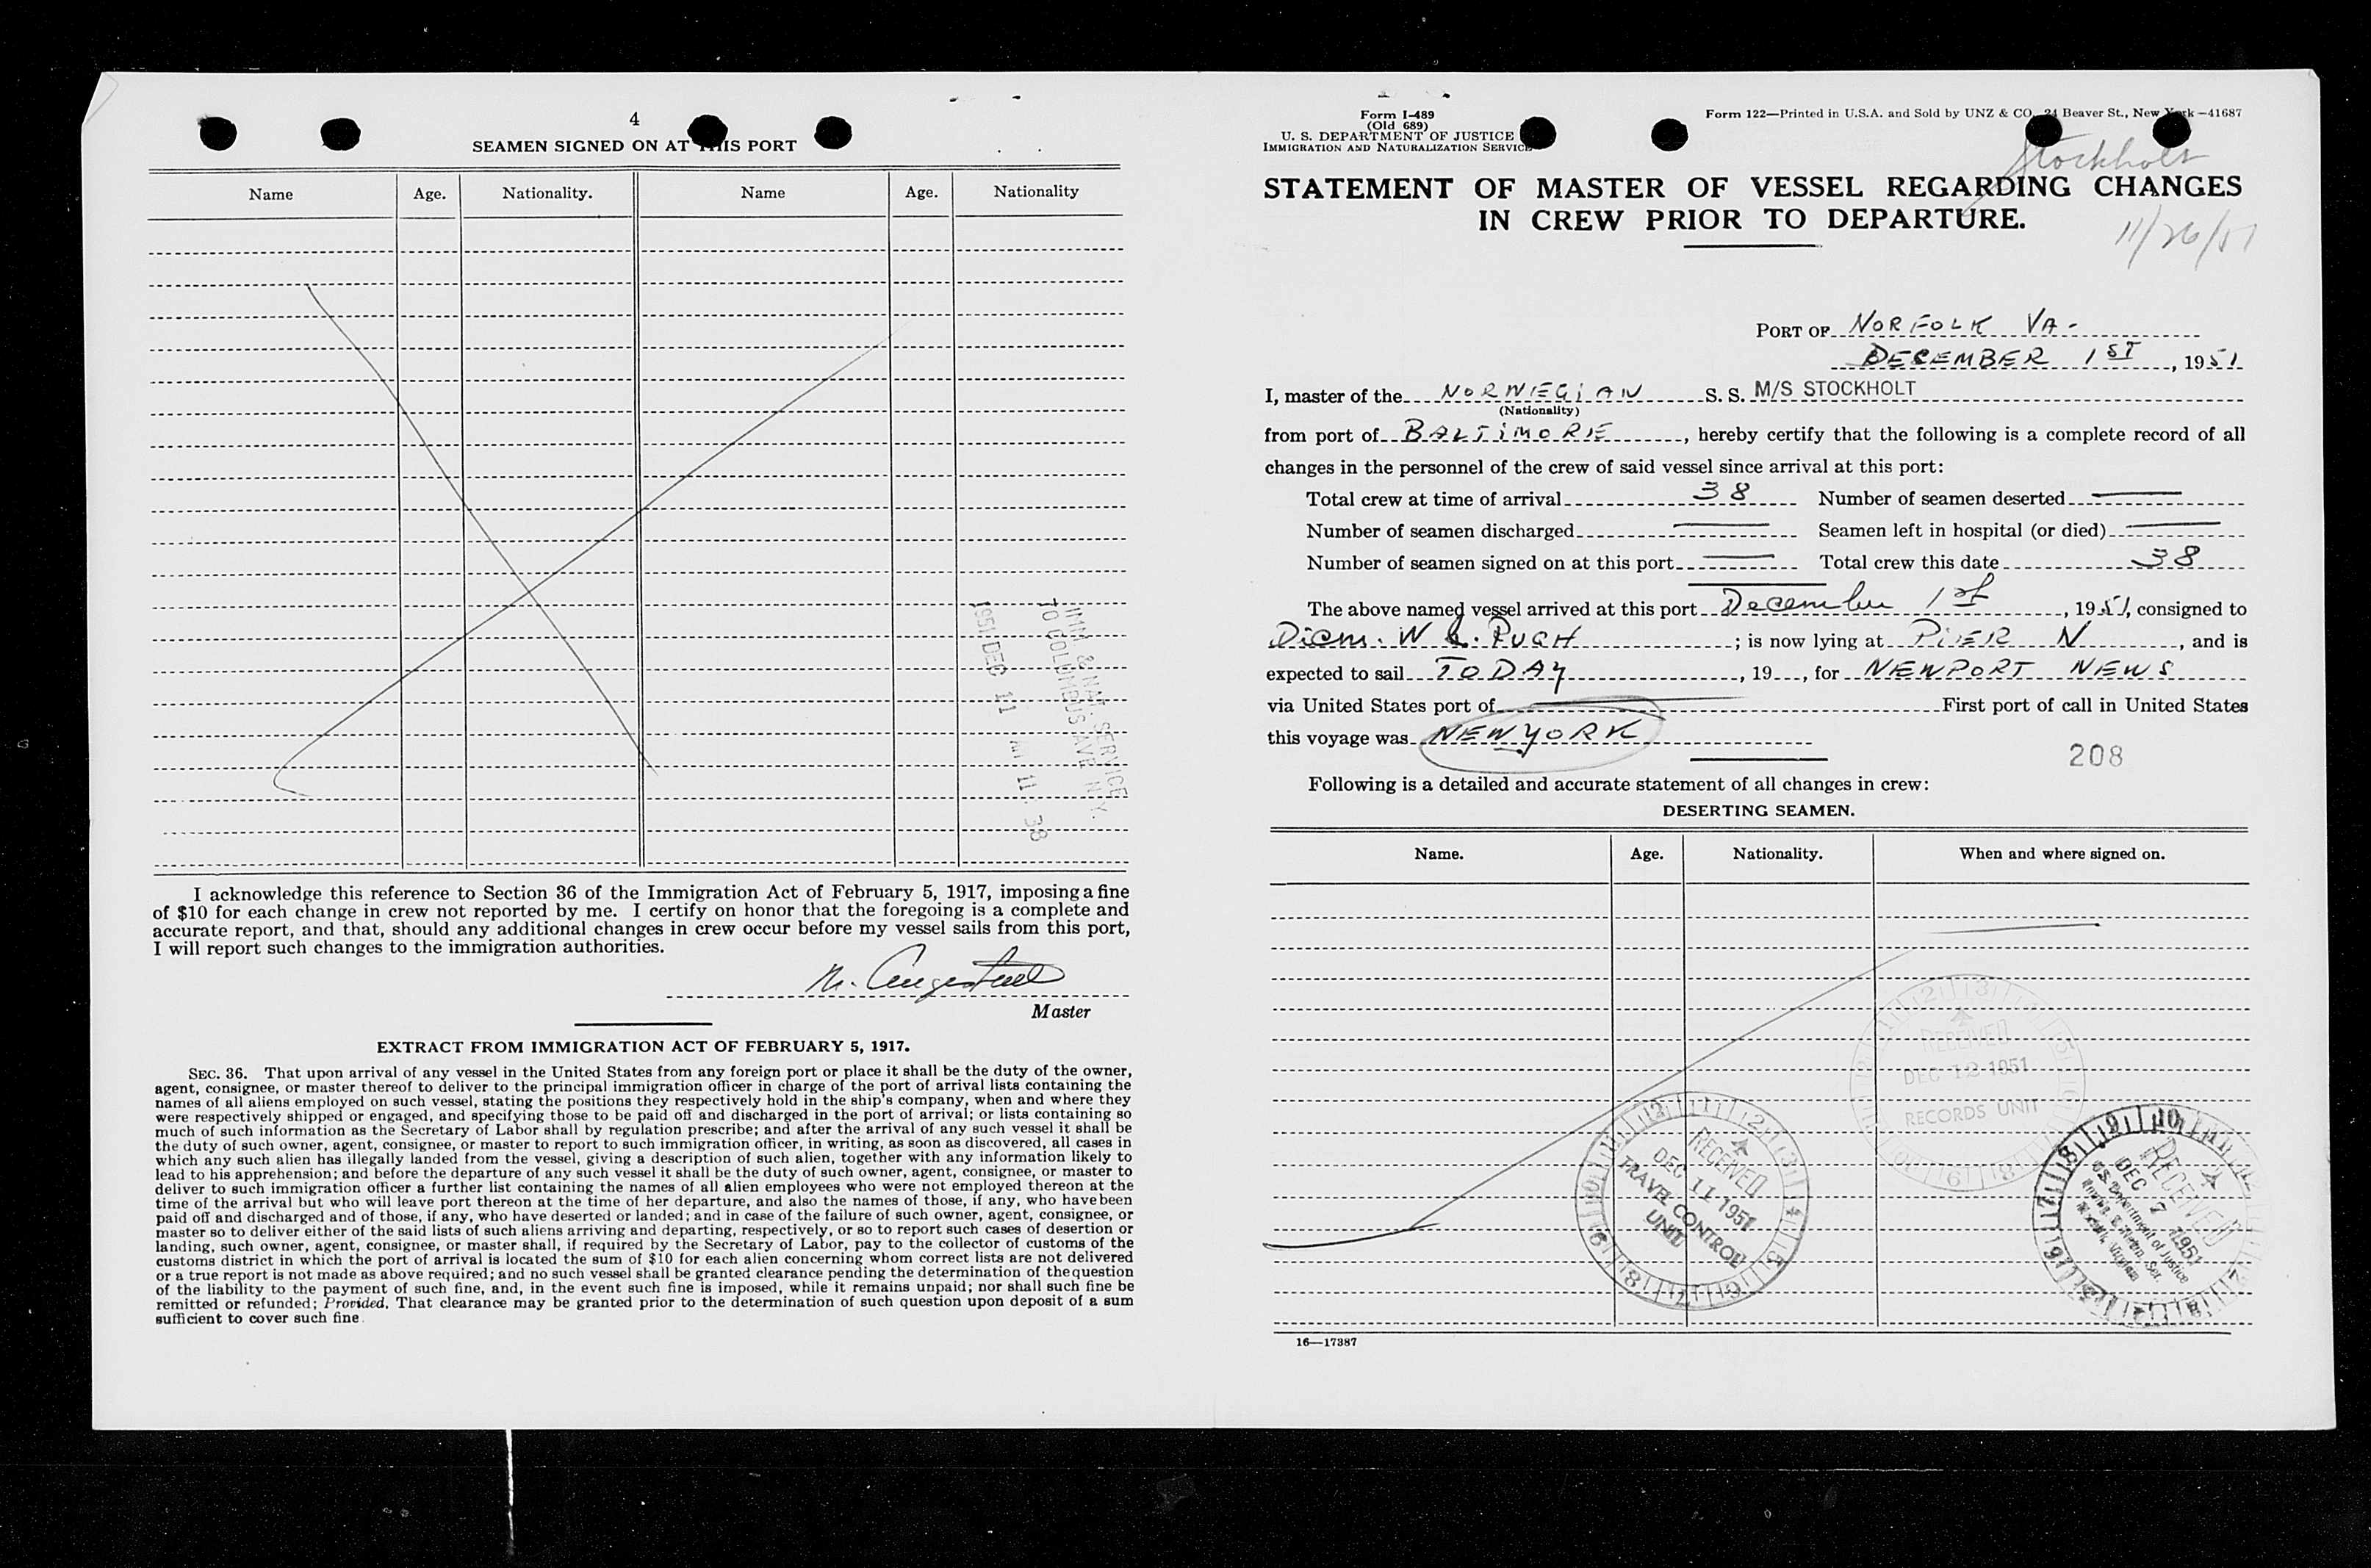 4
SEAMEN SIGNED ON AT THIS PORT
Name Age. Nationality. Name Age. Nationality
IMM & NAT SERVICE
70 COLUMBUS AVE N.Y.
1951 DEC 11 AM 11 38
I acknowledge this reference to Section 36 of the Immigration Act of February 5, 1917, imposing a fine
of $10 for each change in crew not reported by me. I certify on honor that the foregoing is a complete and
accurate report, and that, should any additional changes in crew occur before my vessel sails from this port,
I will report such changes to the immigration authorities.
Master
EXTRACT FROM IMMIGRATION ACT OF FEBRUARY 5, 1917.
SEC. 36. That upon arrival of any vessel in the United States from any foreign port or place it shall be the duty of the owner,
agent, consignee, or master thereof to deliver to the principal immigration officer in charge of the port of arrival lists containing the
names of all aliens employed on such vessel, stating the positions they respectively hold in the ship's company, when and where they
were respectively shipped or engaged, and specifying those to be paid off and discharged in the port of arrival; or lists containing so
much of such information as the Secretary of Labor shall by regulation prescribe; and after the arrival of any such vessel it shall be
the duty of such owner, agent, consignee, or master to report to such immigration officer, in writing, as soon as discovered, all cases in
which any such alien has illegally landed from the vessel, giving a description of such alien, together with any information likely to
lead to his apprehension; and before the departure of any such vessel it shall be the duty of such owner, agent, consignee, or master to
deliver to such immigration officer a further list containing the names of all alien employees who were not employed thereon at the
time of the arrival but who will leave port thereon at the time of her departure, and also the names of those, if any, who have been
paid off and discharged and of those, if any, who have deserted or landed; and in case of the failure of such owner, agent, consignee, or
master so to deliver either of the said lists of such aliens arriving and departing, respectively, or so to report such cases of desertion or
landing, such owner, agent, consignee, or master shall, if required by the Secretary of Labor, pay to the collector of customs of the
customs district in which the port of arrival is located the sum of $10 for each alien concerning whom correct lists are not delivered
or a true report is not made as above required; and no such vessel shall be granted clearance pending the determination of the question
of the liability to the payment of such fine, and, in the event such fine is imposed, while it remains unpaid; nor shall such fine be
remitted or refunded; Provided, That clearance may be granted prior to the determination of such question upon deposit of a sum
sufficient to cover such fine.
Form I-489
(Old 689)
U. S. DEPARTMENT OF JUSTICE
IMMIGRATION AND NATURALIZATION SERVICE
Form 122—Printed in U.S.A. and Sold by UNZ & CO., 24 Beaver St., New York—41687
Stockholt
STATEMENT OF MASTER OF VESSEL REGARDING CHANGES
IN CREW PRIOR TO DEPARTURE.
11/26/51
PORT OF NORFOLK VA-
DECEMBER 1ST, 1951
I, master of the NORWEGIAN S. S. M/S STOCKHOLT
(Nationality)
from port of BALTIMORE, hereby certify that the following is a complete record of all
changes in the personnel of the crew of said vessel since arrival at this port:
Total crew at time of arrival 38 Number of seamen deserted —
Number of seamen discharged — Seamen left in hospital (or died) —
Number of seamen signed on at this port — Total crew this date 38
The above named vessel arrived at this port December 1st, 1951, consigned to
Dicm. W. L. PUGH; is now lying at PIER N, and is
expected to sail TODAY, 19 , for NEWPORT NEWS
via United States port of — First port of call in United States
this voyage was NEW YORK
208
Following is a detailed and accurate statement of all changes in crew:
DESERTING SEAMEN.
Name. Age. Nationality. When and where signed on.
RECEIVED
DEC 12 1951
RECORDS UNIT
RECEIVED
DEC 11 1951
TRAVEL CONTROL
UNIT
RECEIVED
DEC 7 1951
U.S. Department of Justice
Immig. & Natzn. Ser.
Norfolk, Virginia
16—17387